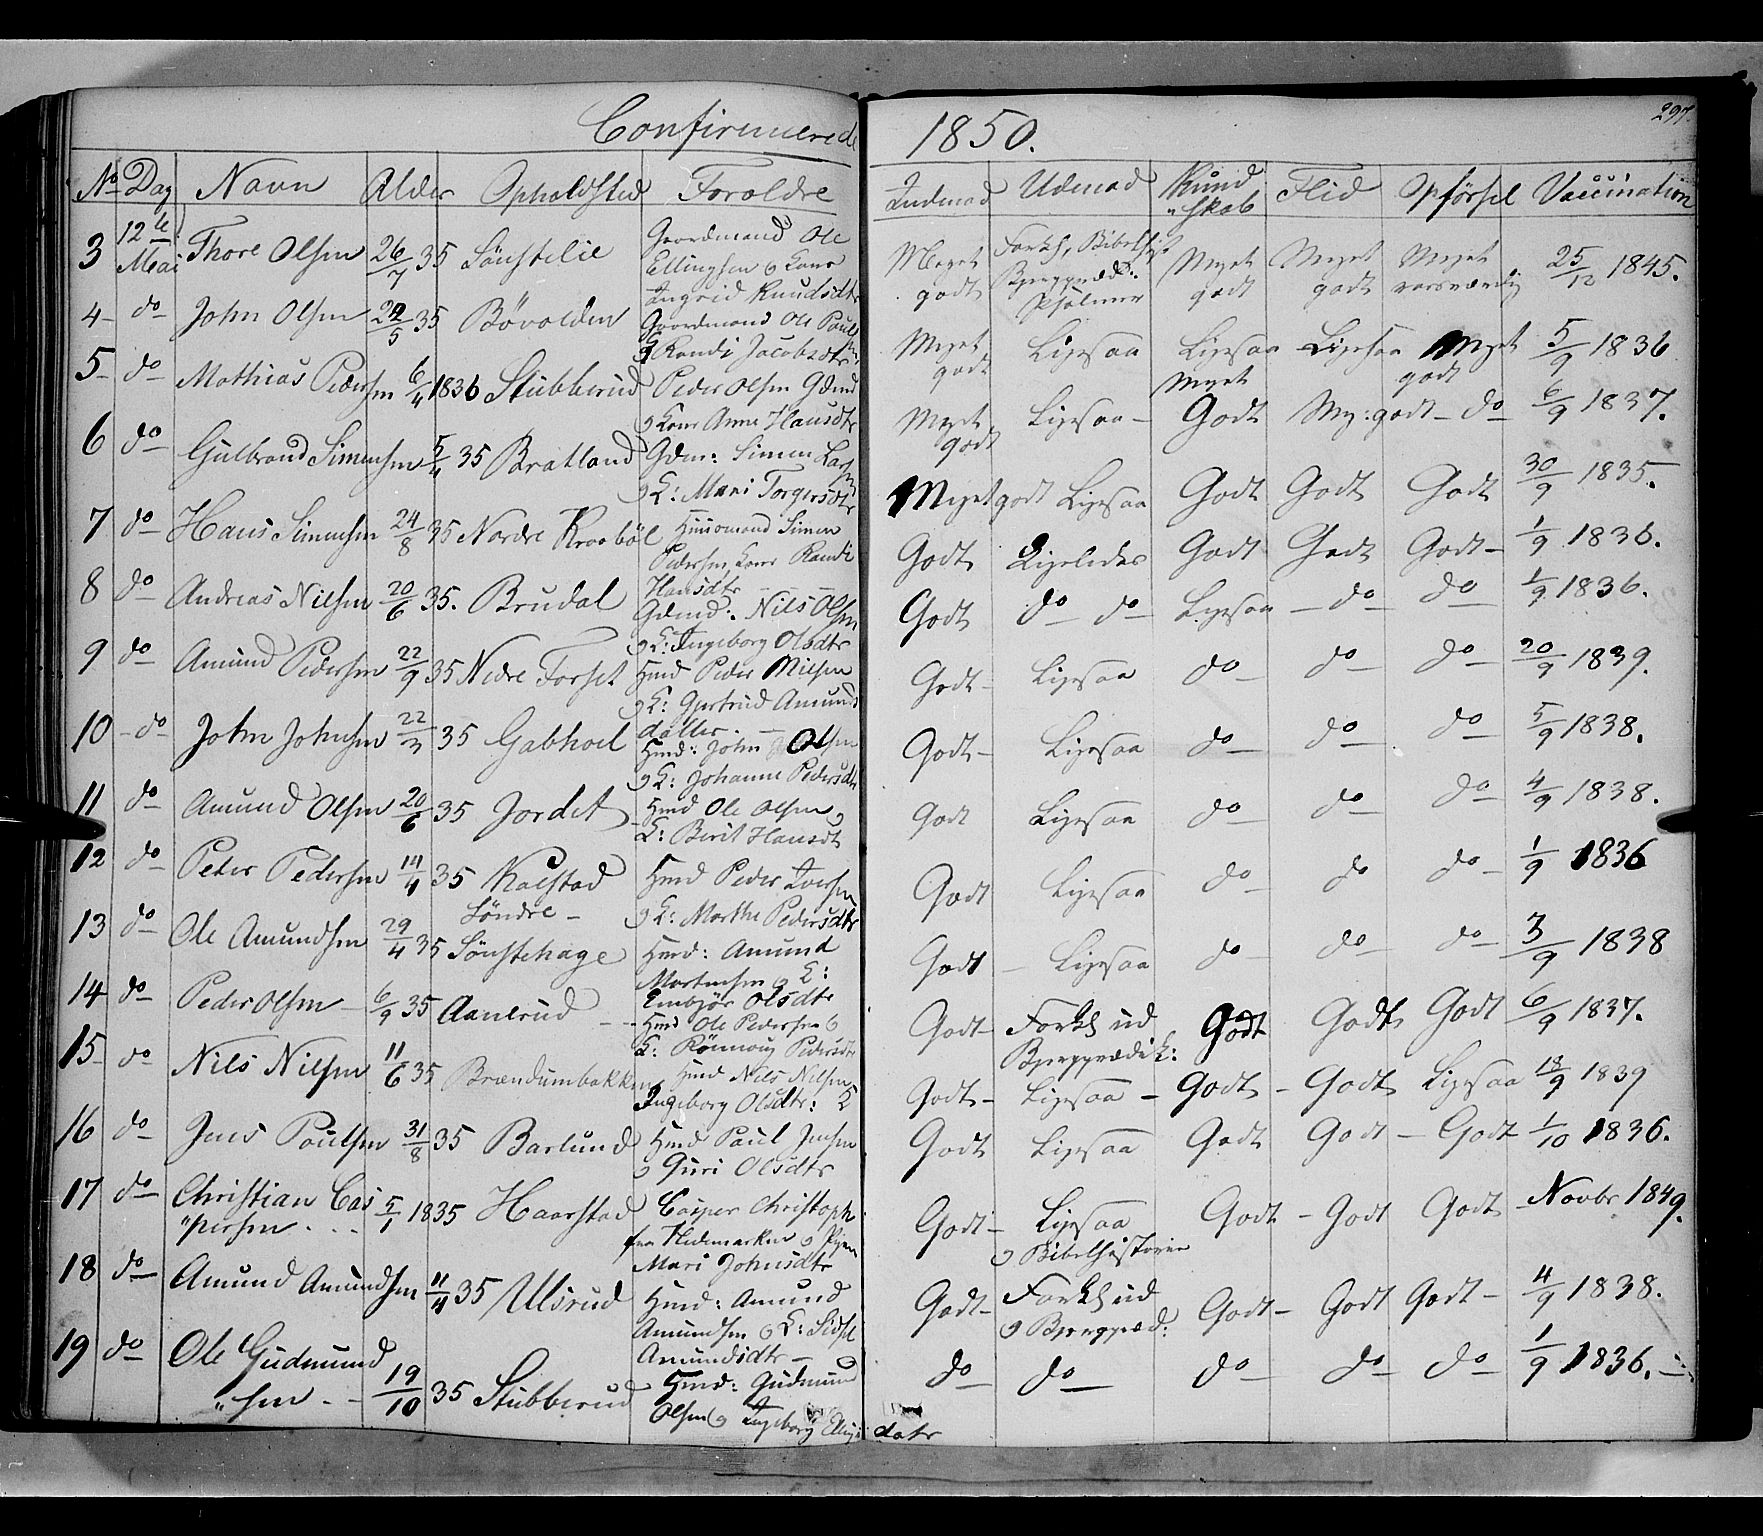 Confirmerede 1850.
297.
No Dag Navn Alder Opholdsted Forældre Indenad Udenad Kund"skab Flid Opførsel Vaccination
3 12te Mai Thore Olsen 26/7 35 Sønstelie Gaardmand Ole Ellingsen og Kone Ingrid Knudsdtr Meget godt Forkl, Bibelhist Bjergpræd: Psalmer Meget godt Meget godt Meget roesværdig 25/12 1845.
4 do John Olsen 22/5 35 Bøvolden Gaardmand Ole Pauls og Randi Jacobsdtr Meget godt Ligesaa Ligesaa Ligesaa Meget godt 5/9 1836
5 do Mathias Pedersen 6/4 1836 Stubberud Peder Olsen Gdmd og Kone Anne Hansdtr Meget godt Ligesaa Meget Godt Mg: godt do 6/9 1837.
6 do Gulbrand Simensen 5/4 35 Bratland Gdm: Simen Lars og K: Mari Torgersdtr Meget godt Ligesaa Godt Godt Godt 30/9 1835.
7 do Hans Simensen 24/8 35 Nordre Kraabøl Huusmand Simen Pedersen Kone Randi Hansdtr Godt Ligeledes Godt Godt Godt 1/9 1836.
8 do Andreas Nilsen 20/6 35. Brudal Gdmd: Nils Olsen og K: Ingeborg Olsdtr Godt do do Ligesaa do do 1/9 1836.
9 do Amund Pedersen 22/9 35 Nedre Forset Hmd Peder Nilsen og K: Gjertrud Amunds datter. Godt Ligesaa do do do 20/9 1839.
10 do John Johnsen 22/3 35 Gabhoel Hmd: John Olsen og K: Johanne Pedersdtr Godt Ligesaa do do do 5/9 1838.
11 do Amund Olsen 20/6 35 Jordet Hmd Ole Olsen og K: Berit Hansdt Godt Ligesaa do do do 4/9 1838.
12 do Peder Pedersen 14/4 35 Kalstad Hmd Peder Iversen og K: Marthe Pedersdtr Godt Ligesaa do do do 1/9 1836
13 do Ole Amundsen 29/4 35 Søndre Sønstehage Hmd: Amund Mortensen og K: Embjør Olsdtr Godt Ligesaa do do do 3/9 1838
14 do Peder Olsen 6/9 35 Aanerud Hmd Ole Pedersen og K: Rønnoug Pedersdtr Godt Forkl ud Bjergprædik: Godt Godt Godt 6/9 1837.
15 do Nils Nilsen 11/6 35 Brændumbakken Hmd Nils Nilsen Ingeborg Olsdtr: K Godt Ligesaa Godt Godt Ligesaa 18/9 1839
16 do Jens Poulsen 31/8 35 Barlund Hmd Paul Jensen og Guri Olsdtr Godt Ligesaa Godt Godt Godt 1/10 1836.
17 do Christian Cas "persen 5/1 1835 Haarstad Casper Christoph fra Hedemarken og Pigen Mari Johnsdtr Godt Ligesaa og Bibelhistorien Godt Godt Godt Novbr 1849.
18 do Amund Amundsen 11/4 35 Ulsrud Hmd: Amund Amundsen og K: Sidsel Amundsdtr Godt Forkl ud og Bjergpræd: Godt Godt Godt 4/9 1838.
19 do Ole Gudmund "sen 19/10 35 Stubberud Hmd: Gudmund Olsen og Ingeborg Ellings datr do do do do do 1/9 1836.